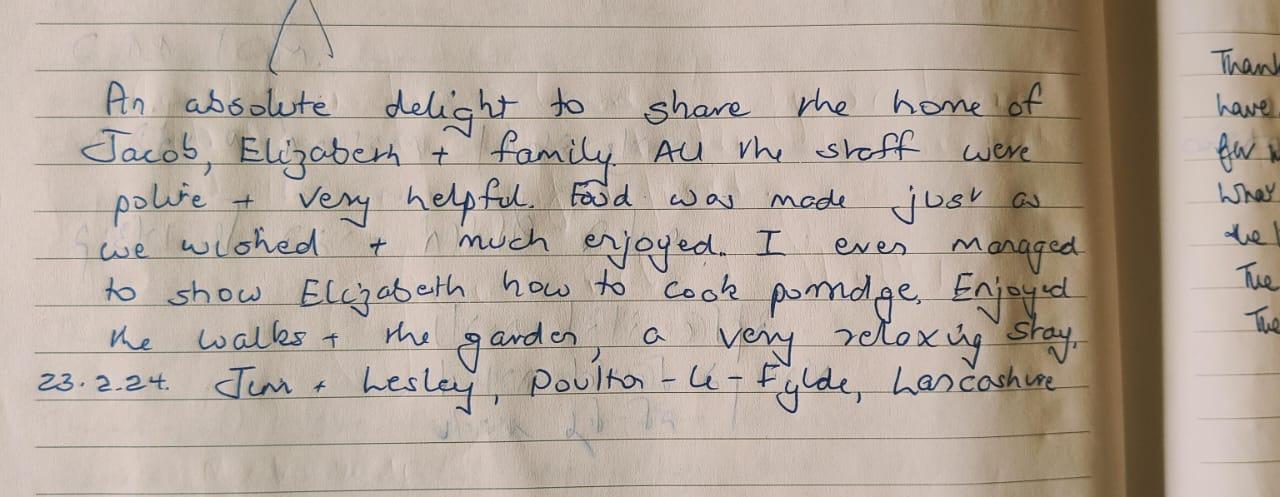 An absolute delight to share the home of
Jacob, Elizabeth + family. All the staff were
polite + very helpful. Food was made just as
we wished + much enjoyed. I even managed
to show Elizabeth how to cook porridge. Enjoyed
the walks + the garden, a very relaxing stay.
23.2.24. Jim + Lesley, Poulton-le-Fylde, Lancashire
Thank
have
for
What
the
The